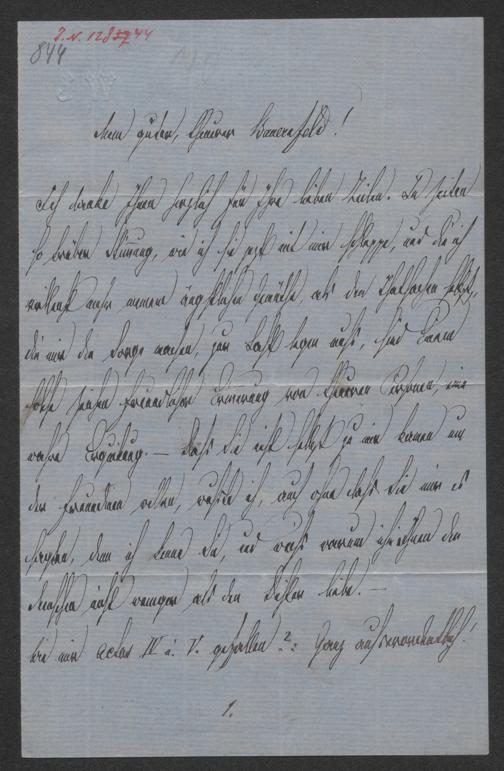 J. N. 128744
844
Mein guter, theurer Bauernfeld!
Ich danke Ihnen herzlich für Ihre lieben Zeilen. In Zeiten
so trüber Stimmung, wie ich sie jetzt mit mir schleppe, und die ich
vielleicht mehr meinem ängstlichen Gemüthe, als den Thatsachen selbst,
die mir die Sorge machen, zur Last legen muß, sind Einem
solche Zeichen freundlicher Erinnerung von theueren Personen, eine
wahre Erquickung. — Daß Sie nicht selbst zu mir kamen um
der Freundinn willen, wußte ich, auch ohne daß Sie mir es
sagten, denn ich kenne Sie, und weiß warum ich in Ihnen den
Menschen nicht weniger als den Dichter liebe. —
Wie mir Actus IV u. V. gefallen?: Ganz außerordentlich!
1.